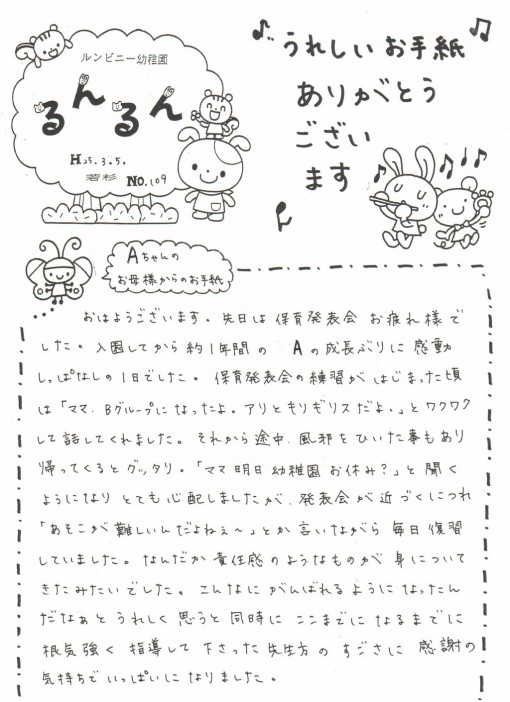 ルンビニー幼稚園
るんるん
H25.3.5.
若杉 NO.109
うれしいお手紙
ありがとう
ござい
ます
Aちゃんの
お母様からのお手紙
おはようございます。先日は保育発表会お疲れ様で
した。入園してから約1年間のAの成長ぶりに感動
しっぱなしの1日でした。保育発表会の練習がはじまった頃
は「ママ、Bグループになったよ。アリとキリギリスだよ。」とワクワク
して話してくれました。それから途中、風邪をひいた事もあり
帰ってくるとグッタリ。「ママ明日幼稚園お休み?」と聞く
ようになりとても心配しましたが、発表会が近づくにつれ
「あそこが難しいんだよねぇ〜」とか言いながら毎日復習
していました。なんだか責任感のようなものが身について
きたみたいでした。こんなにがんばれるようになったん
だなぁとうれしく思うと同時にここまでになるまでに
根気強く指導して下さった先生方のすごさに感謝の
気持ちでいっぱいになりました。